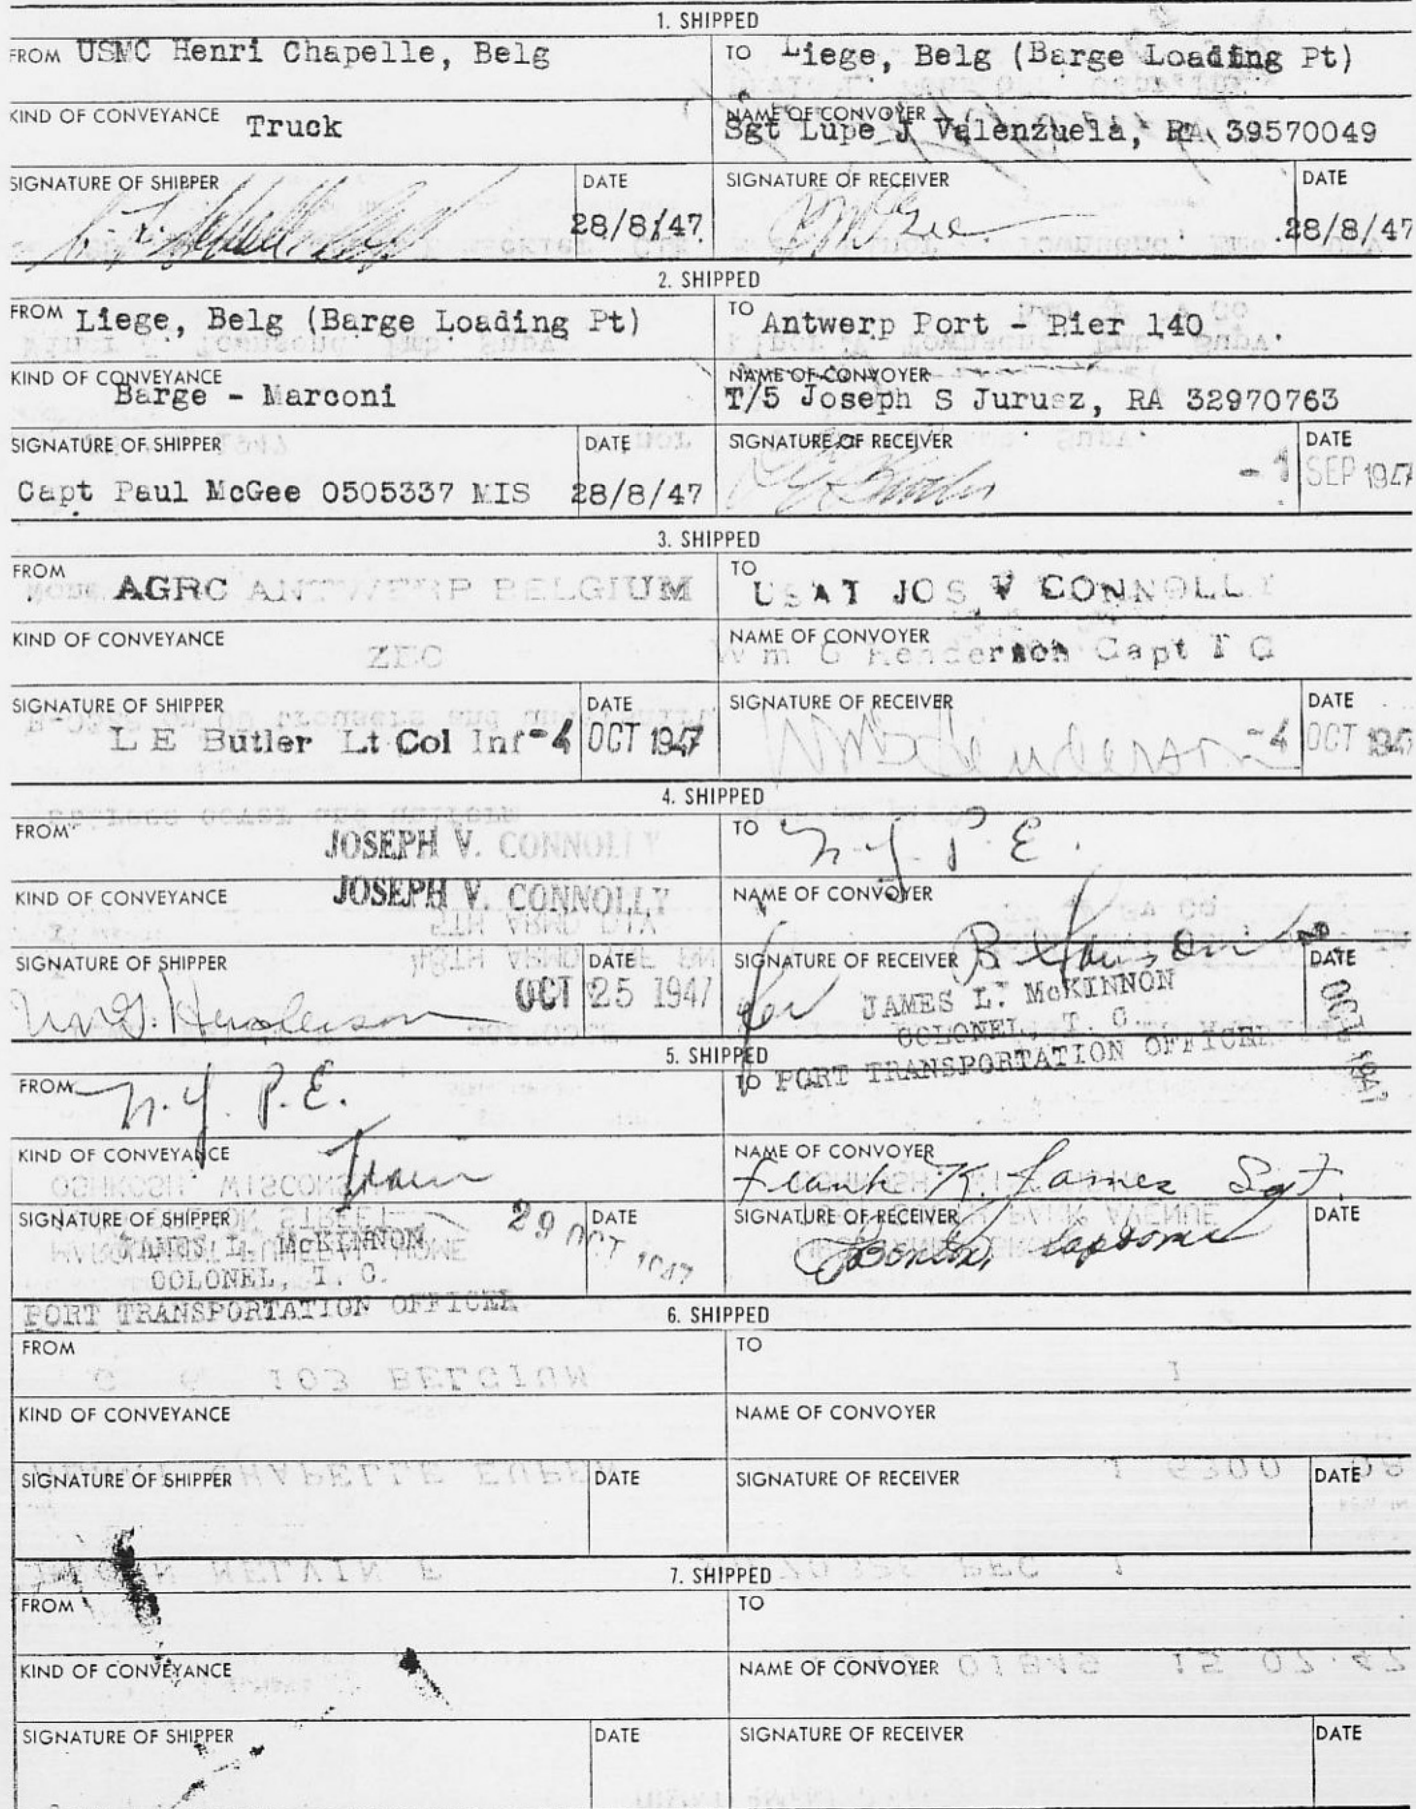 1. SHIPPED
FROM USMC Henri Chapelle, Belg
TO Liege, Belg (Barge Loading Pt)
KIND OF CONVEYANCE Truck
NAME OF CONVOYER
Sgt Lupe J Valenzuela, RA 39570049
SIGNATURE OF SHIPPER
DATE
28/8/47
SIGNATURE OF RECEIVER
DATE
28/8/47
2. SHIPPED
FROM Liege, Belg (Barge Loading Pt)
TO Antwerp Port - Pier 140
KIND OF CONVEYANCE
Barge - Marconi
NAME OF CONVOYER
T/5 Joseph S Jurusz, RA 32970763
SIGNATURE OF SHIPPER
Capt Paul McGee 0505337 MIS
DATE
28/8/47
SIGNATURE OF RECEIVER
DATE
-1 SEP 1947
3. SHIPPED
FROM AGRC ANTWERP BELGIUM
TO USAT JOS V CONNOLLY
KIND OF CONVEYANCE
ZEC
NAME OF CONVOYER
Wm G Henderson Capt T C
SIGNATURE OF SHIPPER
L E Butler Lt Col Inf
DATE
-4 OCT 1947
SIGNATURE OF RECEIVER
Wm G Henderson
DATE
-4 OCT 1947
4. SHIPPED
FROM JOSEPH V. CONNOLLY
TO N.Y.P.E.
KIND OF CONVEYANCE JOSEPH V. CONNOLLY
NAME OF CONVOYER
SIGNATURE OF SHIPPER
Wm G. Henderson
DATE
OCT 25 1947
SIGNATURE OF RECEIVER
for JAMES L. McKINNON
COLONEL, T. C.
PORT TRANSPORTATION OFFICER
DATE
OCT 1947
5. SHIPPED
FROM N.Y. P.E.
TO
KIND OF CONVEYANCE Train
NAME OF CONVOYER
Frank K. James Sgt.
SIGNATURE OF SHIPPER
JAMES L. McKINNON
COLONEL, T. C.
PORT TRANSPORTATION OFFICER
DATE
29 OCT 1947
SIGNATURE OF RECEIVER
DATE
6. SHIPPED
FROM
TO
KIND OF CONVEYANCE
NAME OF CONVOYER
SIGNATURE OF SHIPPER
DATE
SIGNATURE OF RECEIVER
DATE
7. SHIPPED
FROM
TO
KIND OF CONVEYANCE
NAME OF CONVOYER
SIGNATURE OF SHIPPER
DATE
SIGNATURE OF RECEIVER
DATE